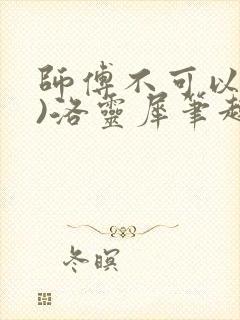 師傅不可以
)洛靈犀筆趣
冬暝